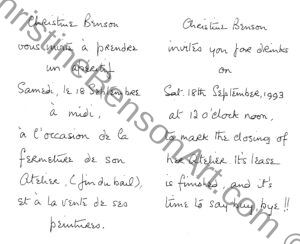 Christine Benson
vous invite à prendre
un apéritif
Samedi, le 18 Septembre
à midi,
à l'occasion de la
fermeture de son
Atelier, (fin du bail),
et à la vente de ses
peintures.
Christine Benson
invites you for drinks
on
Sat. 18th September, 1993
at 12 o'clock noon,
to mark the closing of
her atelier. Its lease
is finished, and it's
time to say guy bye!!
ChristineBensonArt.com ©